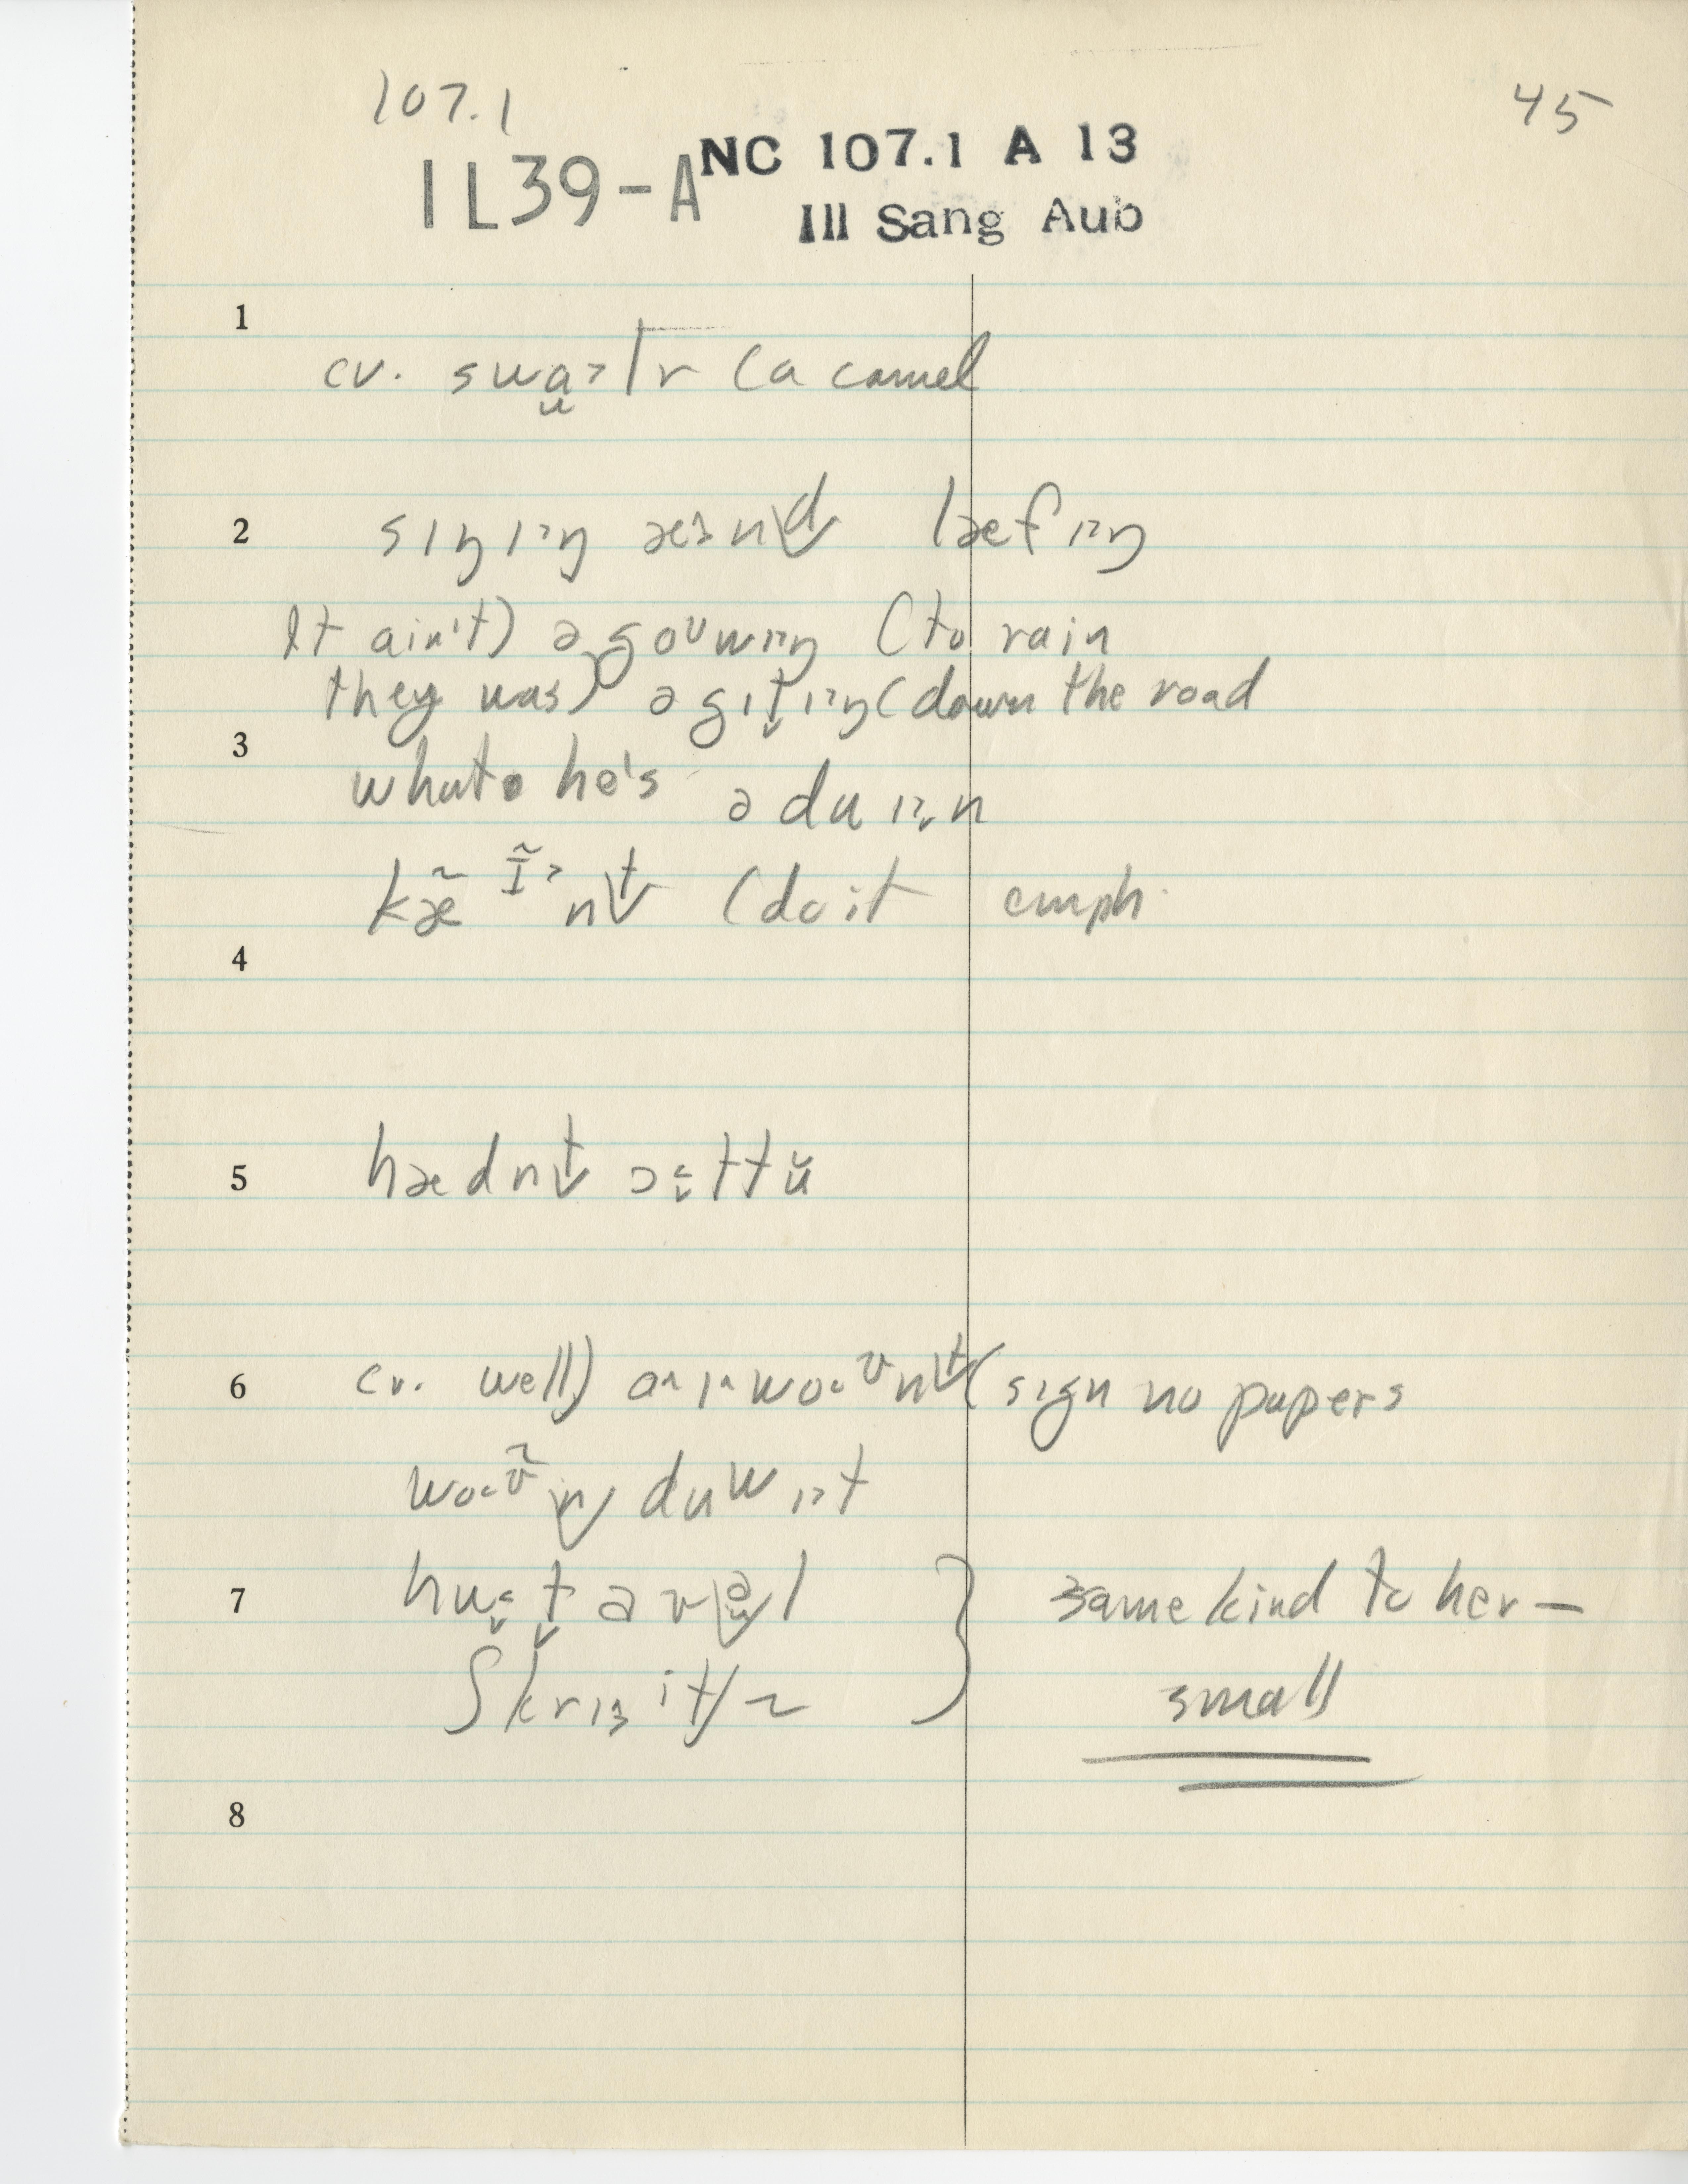 107.1
45
IL39-A
NC 107.1 A 13
Ill Sang Aub
1
cv. swɑ˃lr (a camel
2
sɪŋɪ˃ŋ ænd læfɪ˃ŋ
It ain't) əgoᴜwɪ˃ŋ (to rain
they was) əgɪtɪ˃ŋ (down the road
3
what he's əduɪ˃n
kæ̃ ɪ̃˃nt (do it emph.
4
5
hædnt ɔttŭ
6
cv. well) aɪwoʊnt (sign no papers
woʊ̃n duwɪ˃t
7
hʊt ə vəl } same kind to her—
ʃkrɪitʃ small
8